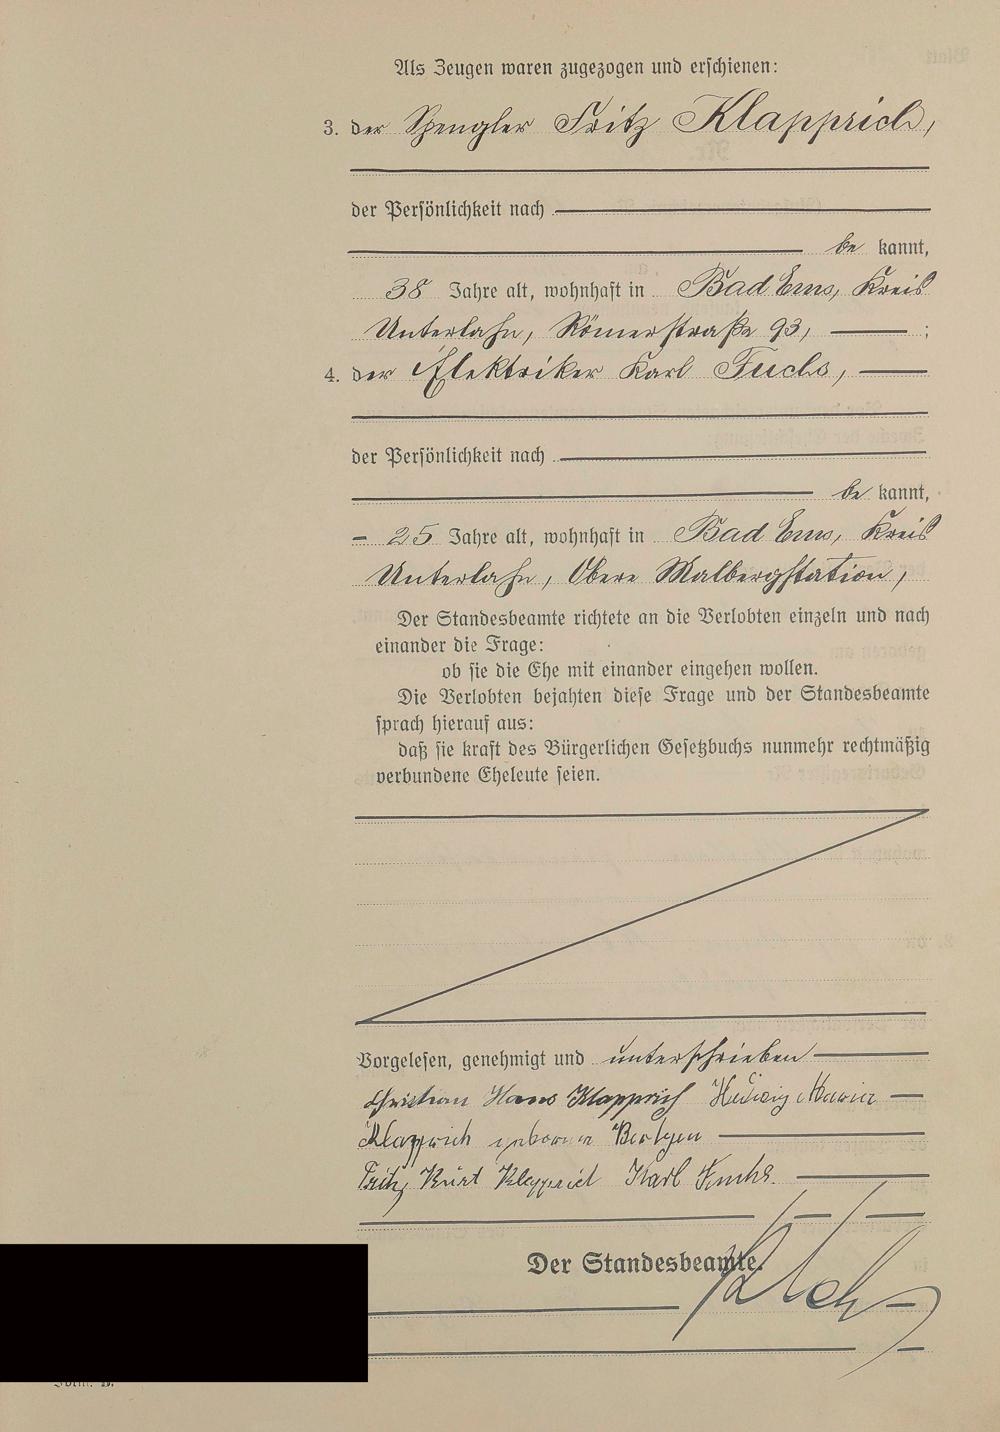 Als Zeugen waren zugezogen und erschienen:
3. der Spengler Fritz Klapprich,
der Persönlichkeit nach
be kannt,
38 Jahre alt, wohnhaft in Bad Ems, Kreis
Unterlahn, Römerstraße 93, ;
4. der Elektriker Karl Fuchs,
der Persönlichkeit nach
be kannt,
25 Jahre alt, wohnhaft in Bad Ems, Kreis
Unterlahn, Obere Malbergstation,
Der Standesbeamte richtete an die Verlobten einzeln und nach
einander die Frage:
ob sie die Ehe mit einander eingehen wollen.
Die Verlobten bejahten diese Frage und der Standesbeamte
sprach hierauf aus:
daß sie kraft des Bürgerlichen Gesetzbuchs nunmehr rechtmäßig
verbundene Eheleute seien.
Vorgelesen, genehmigt und unterschrieben
Christian Hans Klapprich Hedwig Maria
Klapprich geborene
Fritz Kurt Klapprich Karl Fuchs.
Der Standesbeamte.